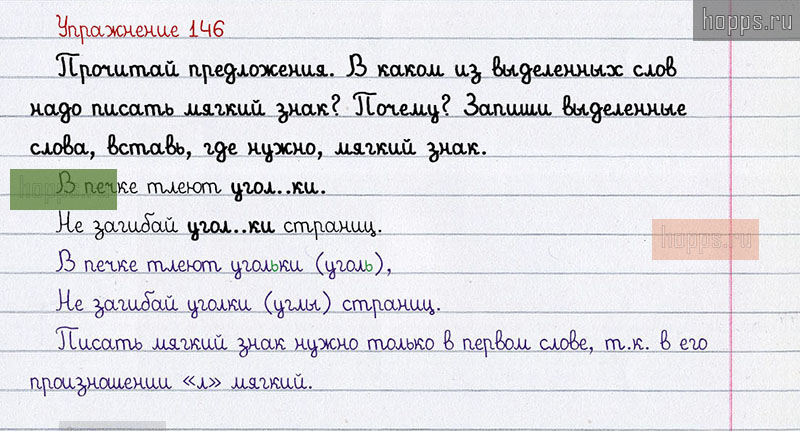 Упражнение 146
hopps.ru
Прочитай предложения. В каком из выделенных слов
надо писать мягкий знак? Почему? Запиши выделенные
слова, вставь, где нужно, мягкий знак.
В печке тлеют угол..ки.
hopps.ru
Не загибай угол..ки страниц.
hopps.ru
В печке тлеют угольки (уголь),
Не загибай уголки (углы) страниц.
Писать мягкий знак нужно только в первом слове, т.к. в его
произношении «л» мягкий.